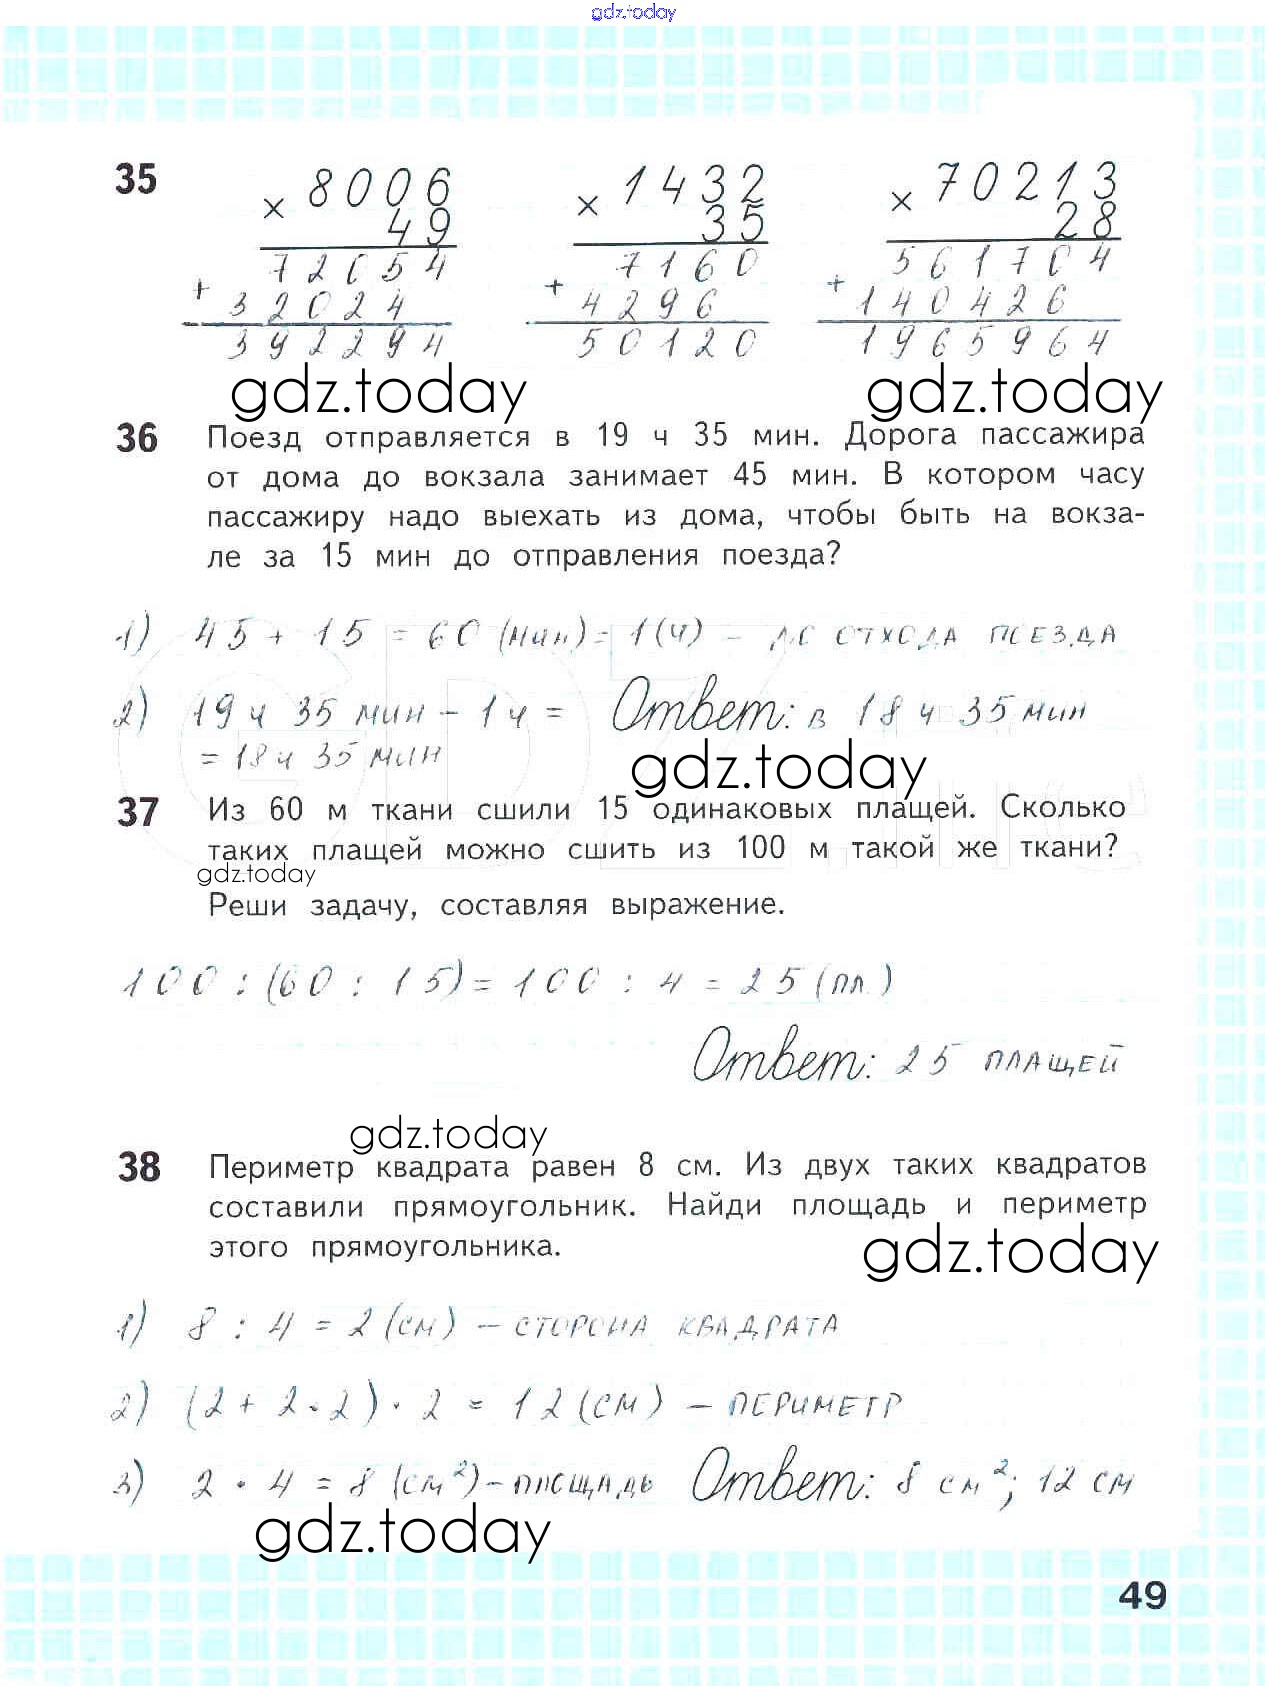 gdz.today
35
× 8006 × 1432 × 70213
49 35 28
72054 7160 561704
+ 32024 + 4296 + 140426
392294 50120 1965964
gdz.today gdz.today
36 Поезд отправляется в 19 ч 35 мин. Дорога пассажира
от дома до вокзала занимает 45 мин. В котором часу
пассажиру надо выехать из дома, чтобы быть на вокза-
ле за 15 мин до отправления поезда?
1) 45 + 15 = 60 (мин) = 1 (ч) – до отхода поезда
2) 19 ч 35 мин – 1 ч = Ответ: в 18 ч 35 мин
= 18 ч 35 мин
gdz.today
37 Из 60 м ткани сшили 15 одинаковых плащей. Сколько
таких плащей можно сшить из 100 м такой же ткани?
gdz.today
Реши задачу, составляя выражение.
100 : (60 : 15) = 100 : 4 = 25 (пл.)
Ответ: 25 плащей
gdz.today
38 Периметр квадрата равен 8 см. Из двух таких квадратов
составили прямоугольник. Найди площадь и периметр
этого прямоугольника.
gdz.today
1) 8 : 4 = 2 (см) – сторона квадрата
2) (2 + 2 · 2) · 2 = 12 (см) – периметр
3) 2 · 4 = 8 (см²) – площадь Ответ: 8 см²; 12 см
gdz.today
49